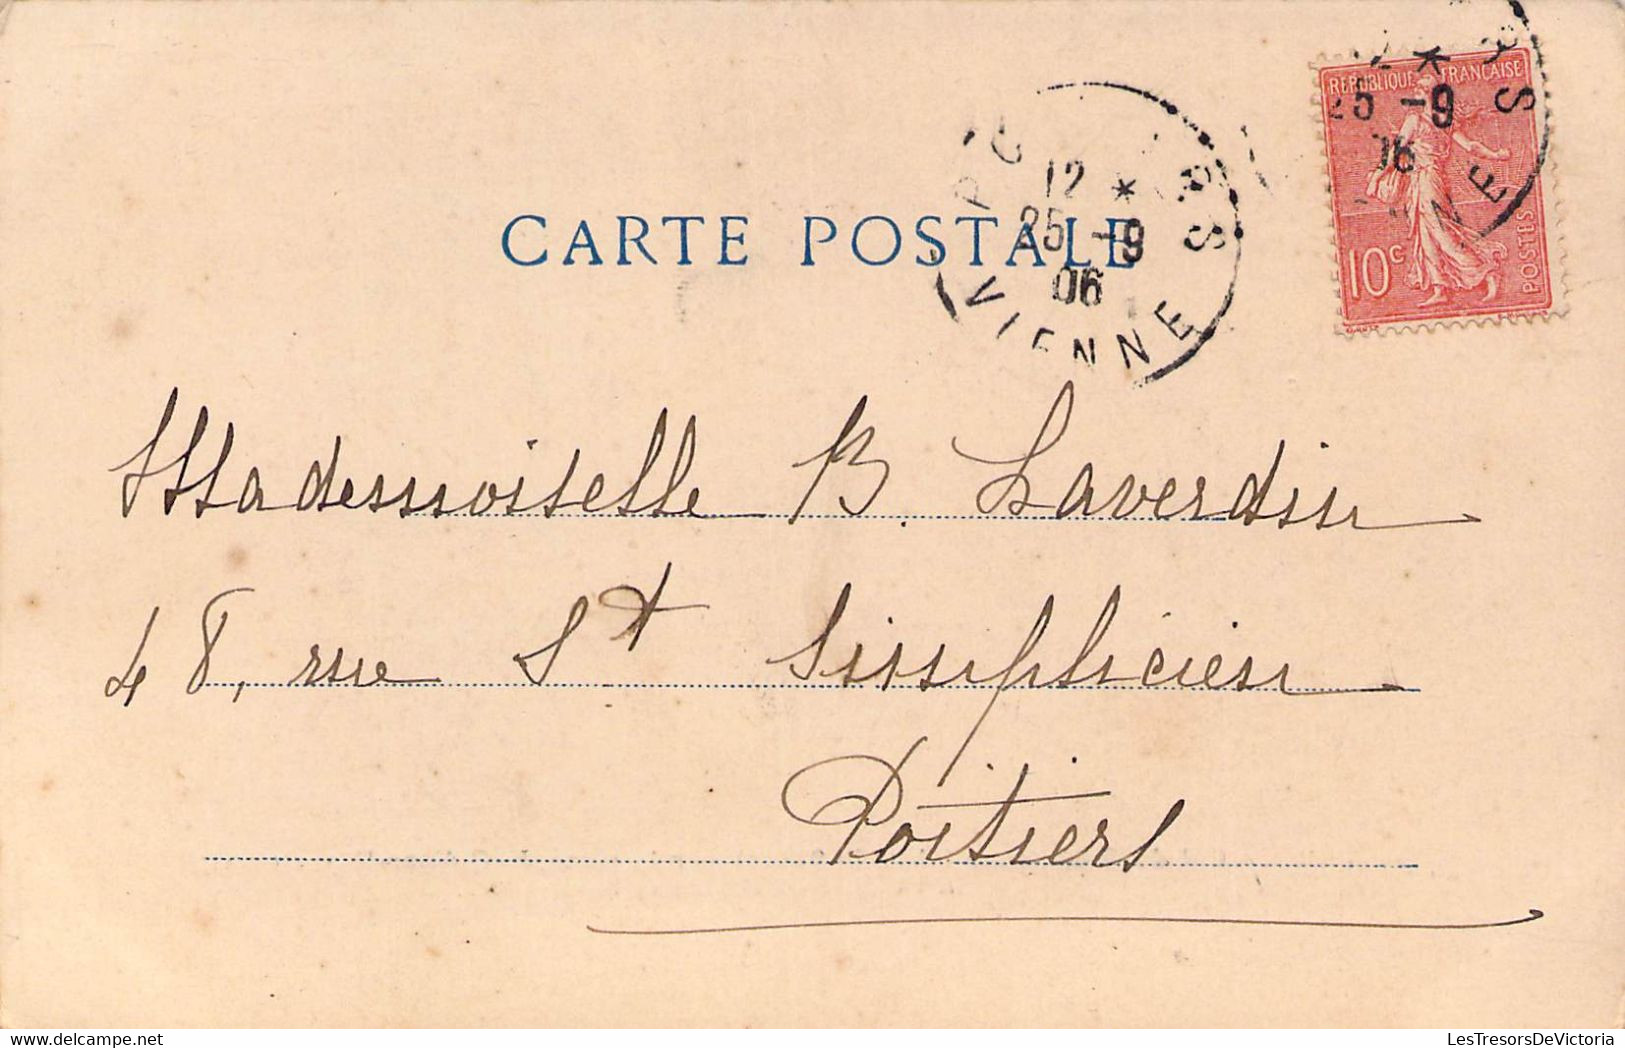 RÉPUBLIQUE FRANÇAISE
25 -9
06
10c
POSTES
12 *
25 -9
06
VIENNE
CARTE POSTALE
Mademoiselle B. Laverdin
48, rue St Simplicien
Poitiers
LesTresorsDeVictoria